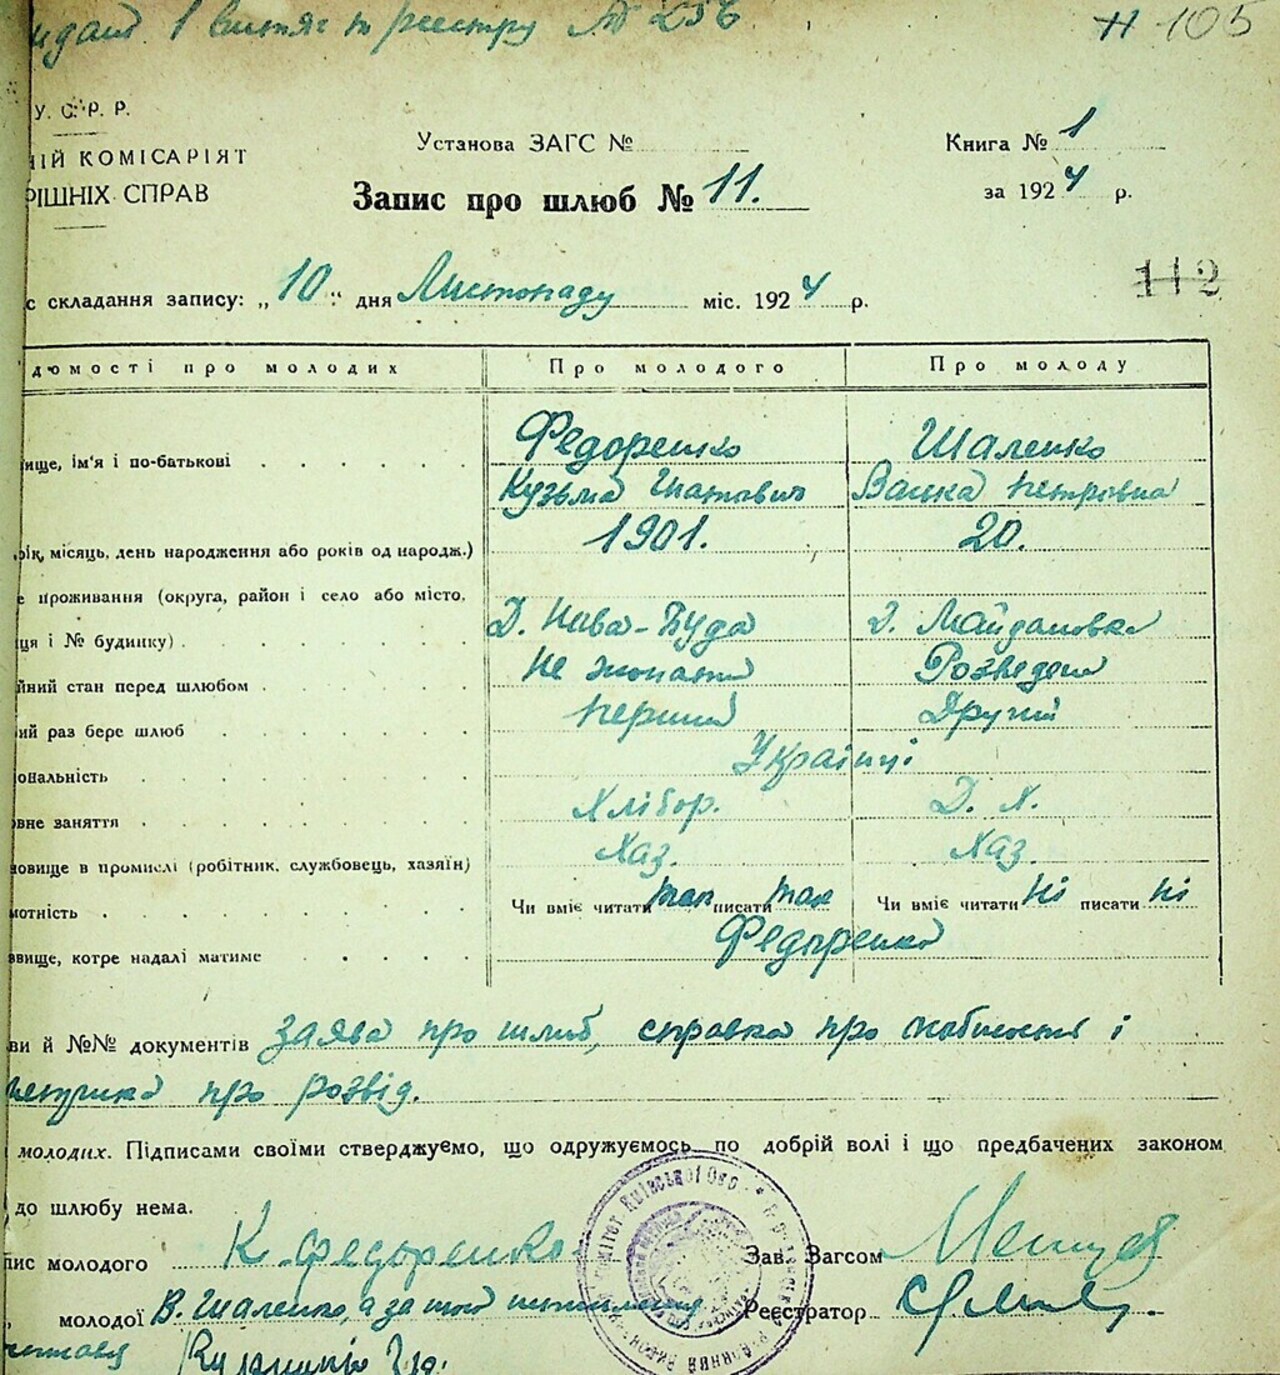 1 витяг по реєстру № 256
# 105
У. С. Р. Р.
КОМІСАРІЯТ
СПРАВ
Установа ЗАГС №
Запис про шлюб № 11.
Книга № 1
за 1924 р.
112
складання запису: „10“ дня Листопаду міс. 1924 р.
про молодих
Про молодого
Про молоду
ім'я і по-батькові
Федоренко
Шаленко
Кузьма Игнатович
Васька Петровна
місяць, день народження або років од народж.)
1901.
20.
проживання (округа, район і село або місто,
і № будинку)
Д. Нова-Буда
Д. Майдановка
стан перед шлюбом
Не жонатий
Розведена
раз бере шлюб
Перший
Другий
Українці
заняття
Хлібор.
Д. Х.
в промислі (робітник, службовець, хазяїн)
Хаз.
Хаз.
Чи вміє читати так писати так
Чи вміє читати ні писати ні
котре надалі матиме
Федоренко
й №№ документів заява про шлюб, справка про і
про розвід.
молодих. Підписами своїми стверджуємо, що одружуємось по добрій волі і що предбачених законом
до шлюбу нема.
молодого К. Федоренко
Зав. Загсом
молодої В. Шаленко, а за
Реєстратор